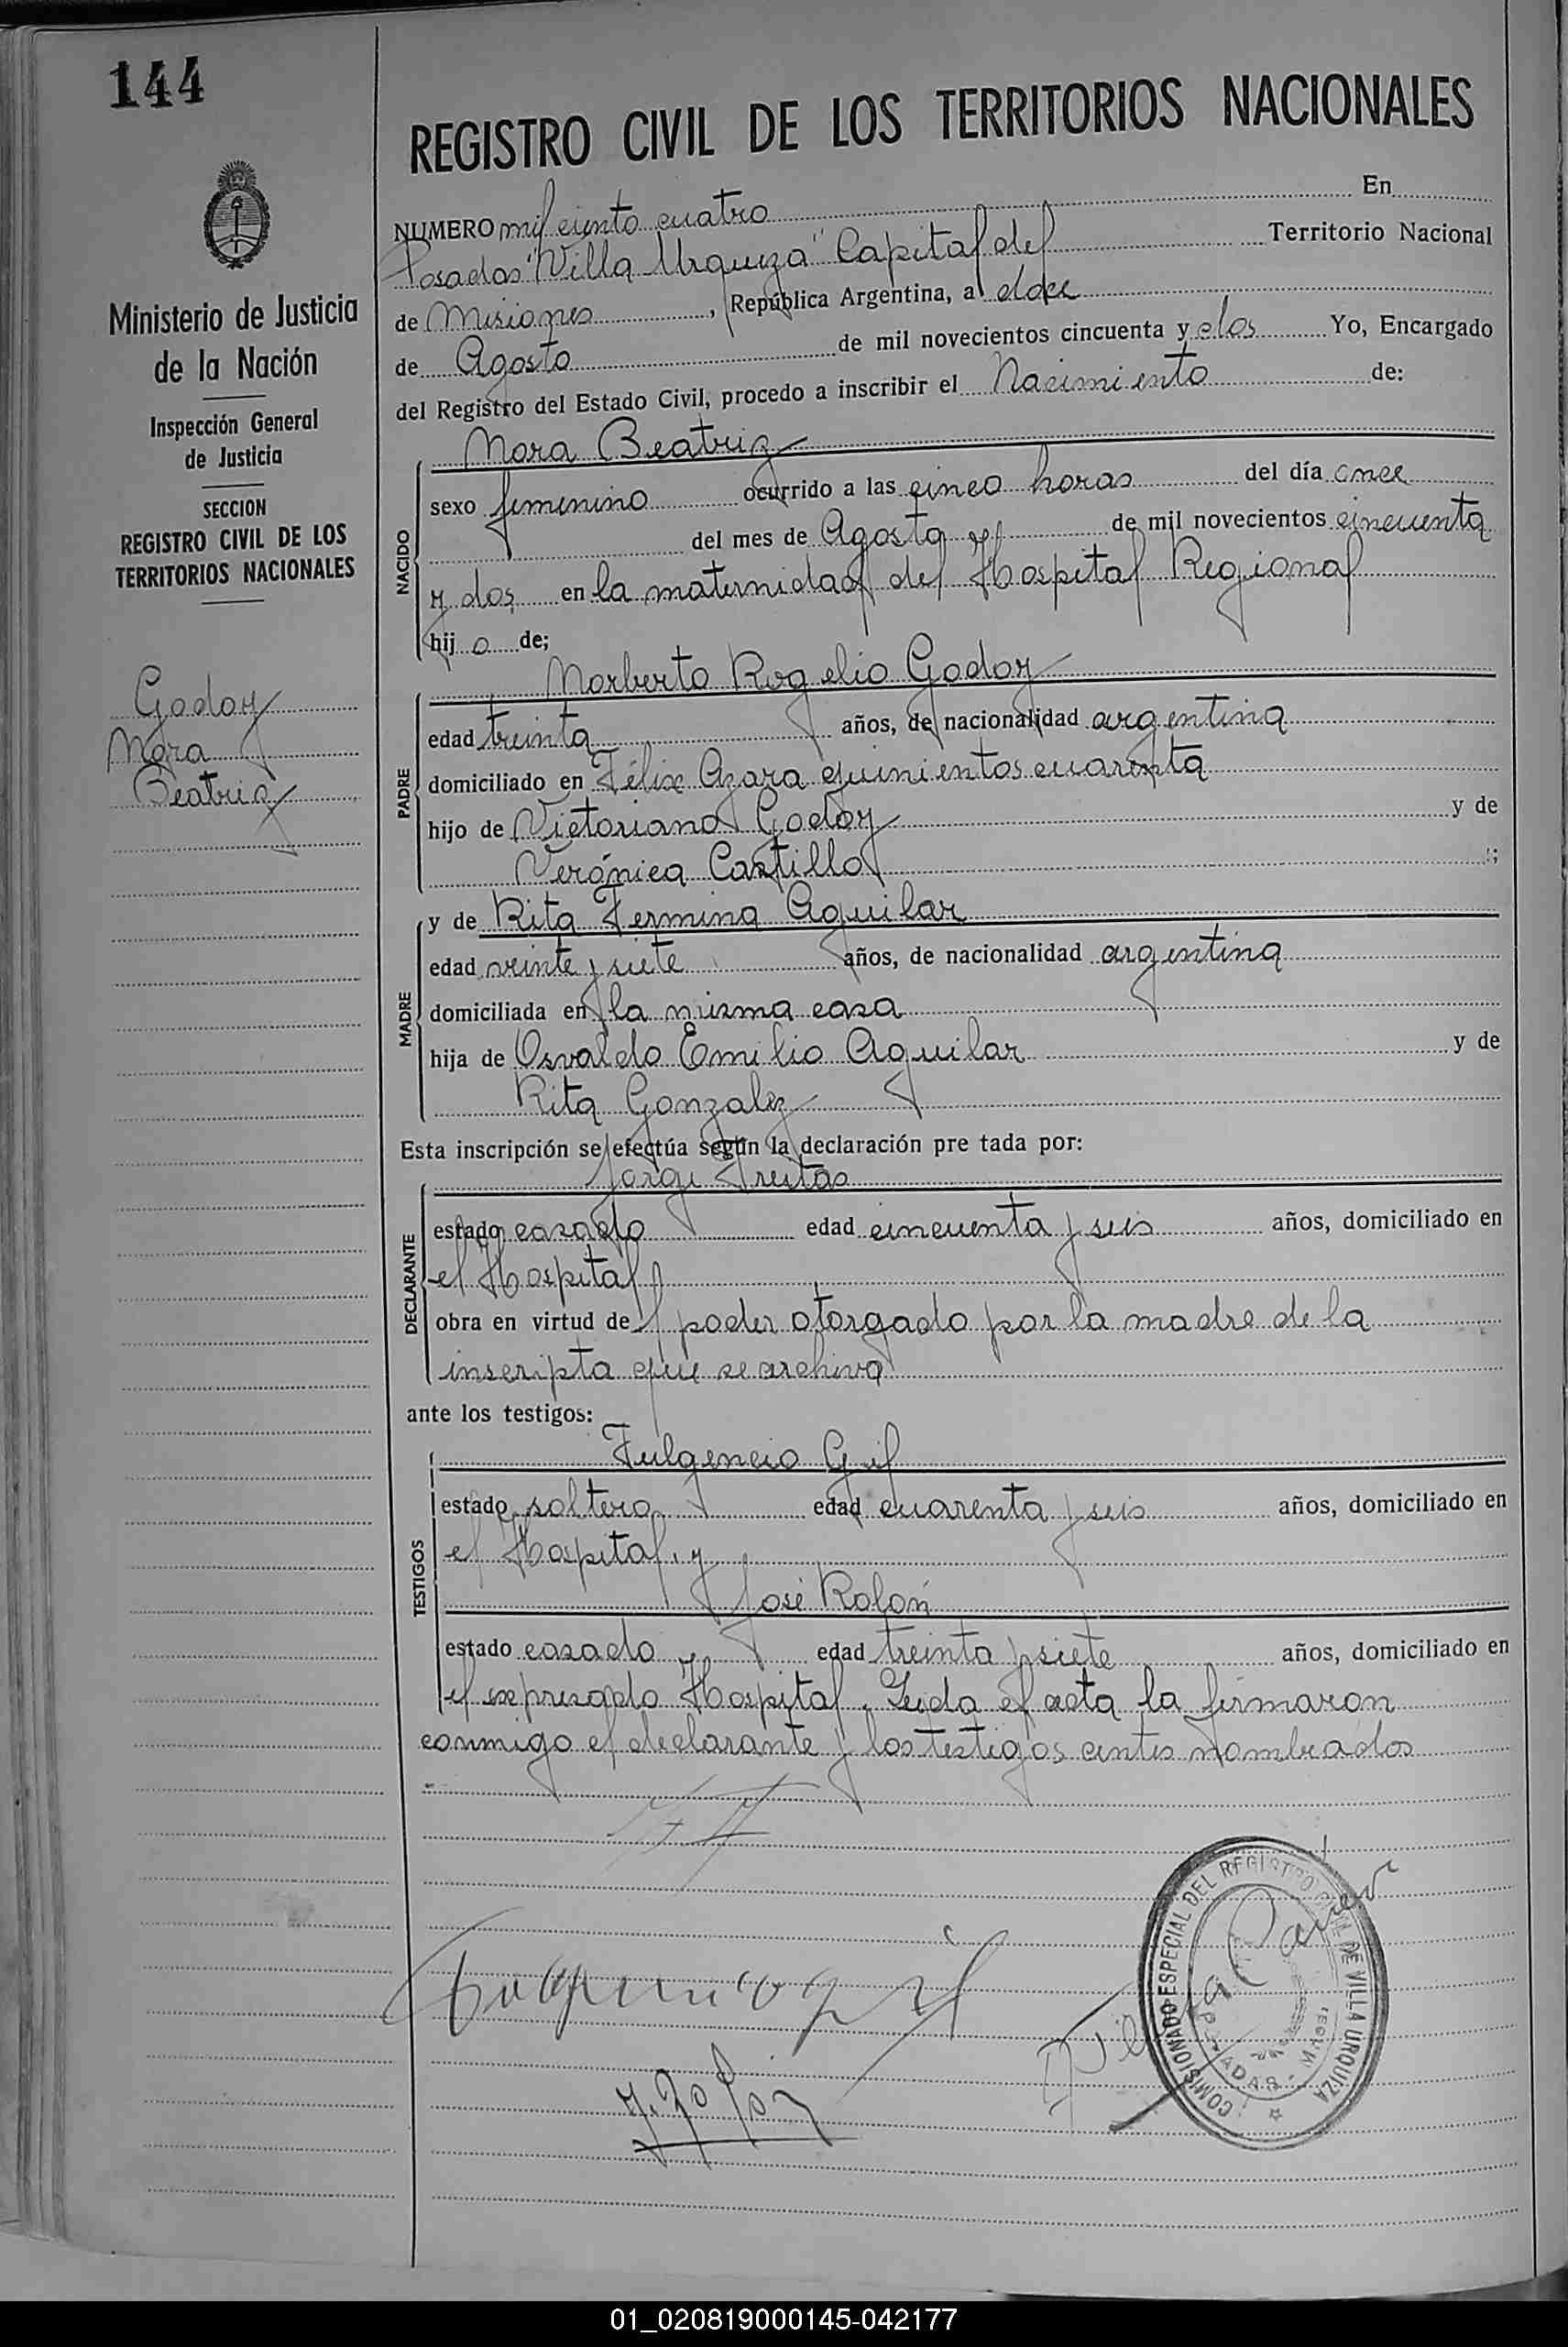 144
Ministerio de Justicia
de la Nación
Inspección General
de Justicia
SECCION
REGISTRO CIVIL DE LOS
TERRITORIOS NACIONALES
Godoy
Nora
Beatriz
REGISTRO CIVIL DE LOS TERRITORIOS NACIONALES
NUMERO mil ciento cuatro En
Posadas "Villa Urquiza" Capital del Territorio Nacional
de Misiones, República Argentina, a doce
de Agosto de mil novecientos cincuenta y dos Yo, Encargado
del Registro del Estado Civil, procedo a inscribir el Nacimiento de:
NACIDO
Nora Beatriz
sexo femenino ocurrido a las cinco horas del día once
del mes de Agosto de mil novecientos cincuenta
y dos en la maternidad del Hospital Regional
hij a de;
PADRE
Norberto Rogelio Godoy
edad treinta años, de nacionalidad argentina
domiciliado en Félix Azara quinientos cuarenta
hijo de Victoriano Godoy y de
Verónica Castillo ;
MADRE
y de Rita Fermina Aguilar
edad veinte y siete años, de nacionalidad argentina
domiciliada en la misma casa
hija de Osvaldo Emilio Aguilar y de
Rita Gonzalez
Esta inscripción se efectúa según la declaración pre tada por:
DECLARANTE
Jorge Freitas
estado casado edad cincuenta y seis años, domiciliado en
el Hospital
obra en virtud del poder otorgado por la madre de la
inscripta que se archiva
ante los testigos:
TESTIGOS
Fulgencio Gil
estado soltero edad cuarenta y seis años, domiciliado en
el Hospital, y
José Rolón
estado casado edad treinta y siete años, domiciliado en
el expresado Hospital. Leida el acta la firmaron
conmigo el declarante y los testigos antes nombrados
COMISIONADO ESPECIAL DEL REGISTRO CIVIL DE VILLA URQUIZA
POSADAS
01_020819000145-042177